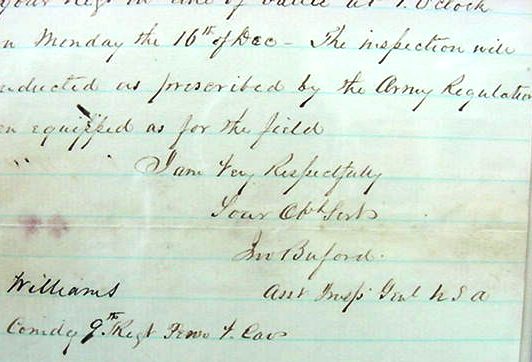 your Regt in line of battle at 1. O'clock
n Monday the 16th of Dec - The inspection will
nducted as prescribed by the Army Regulation
en equipped as for the field
I am Very Respectfully
Your Obt Servt
Jno Buford.
Asst Insp Genl U S A
Williams
Comdg 9th Regt Penn V. Cav